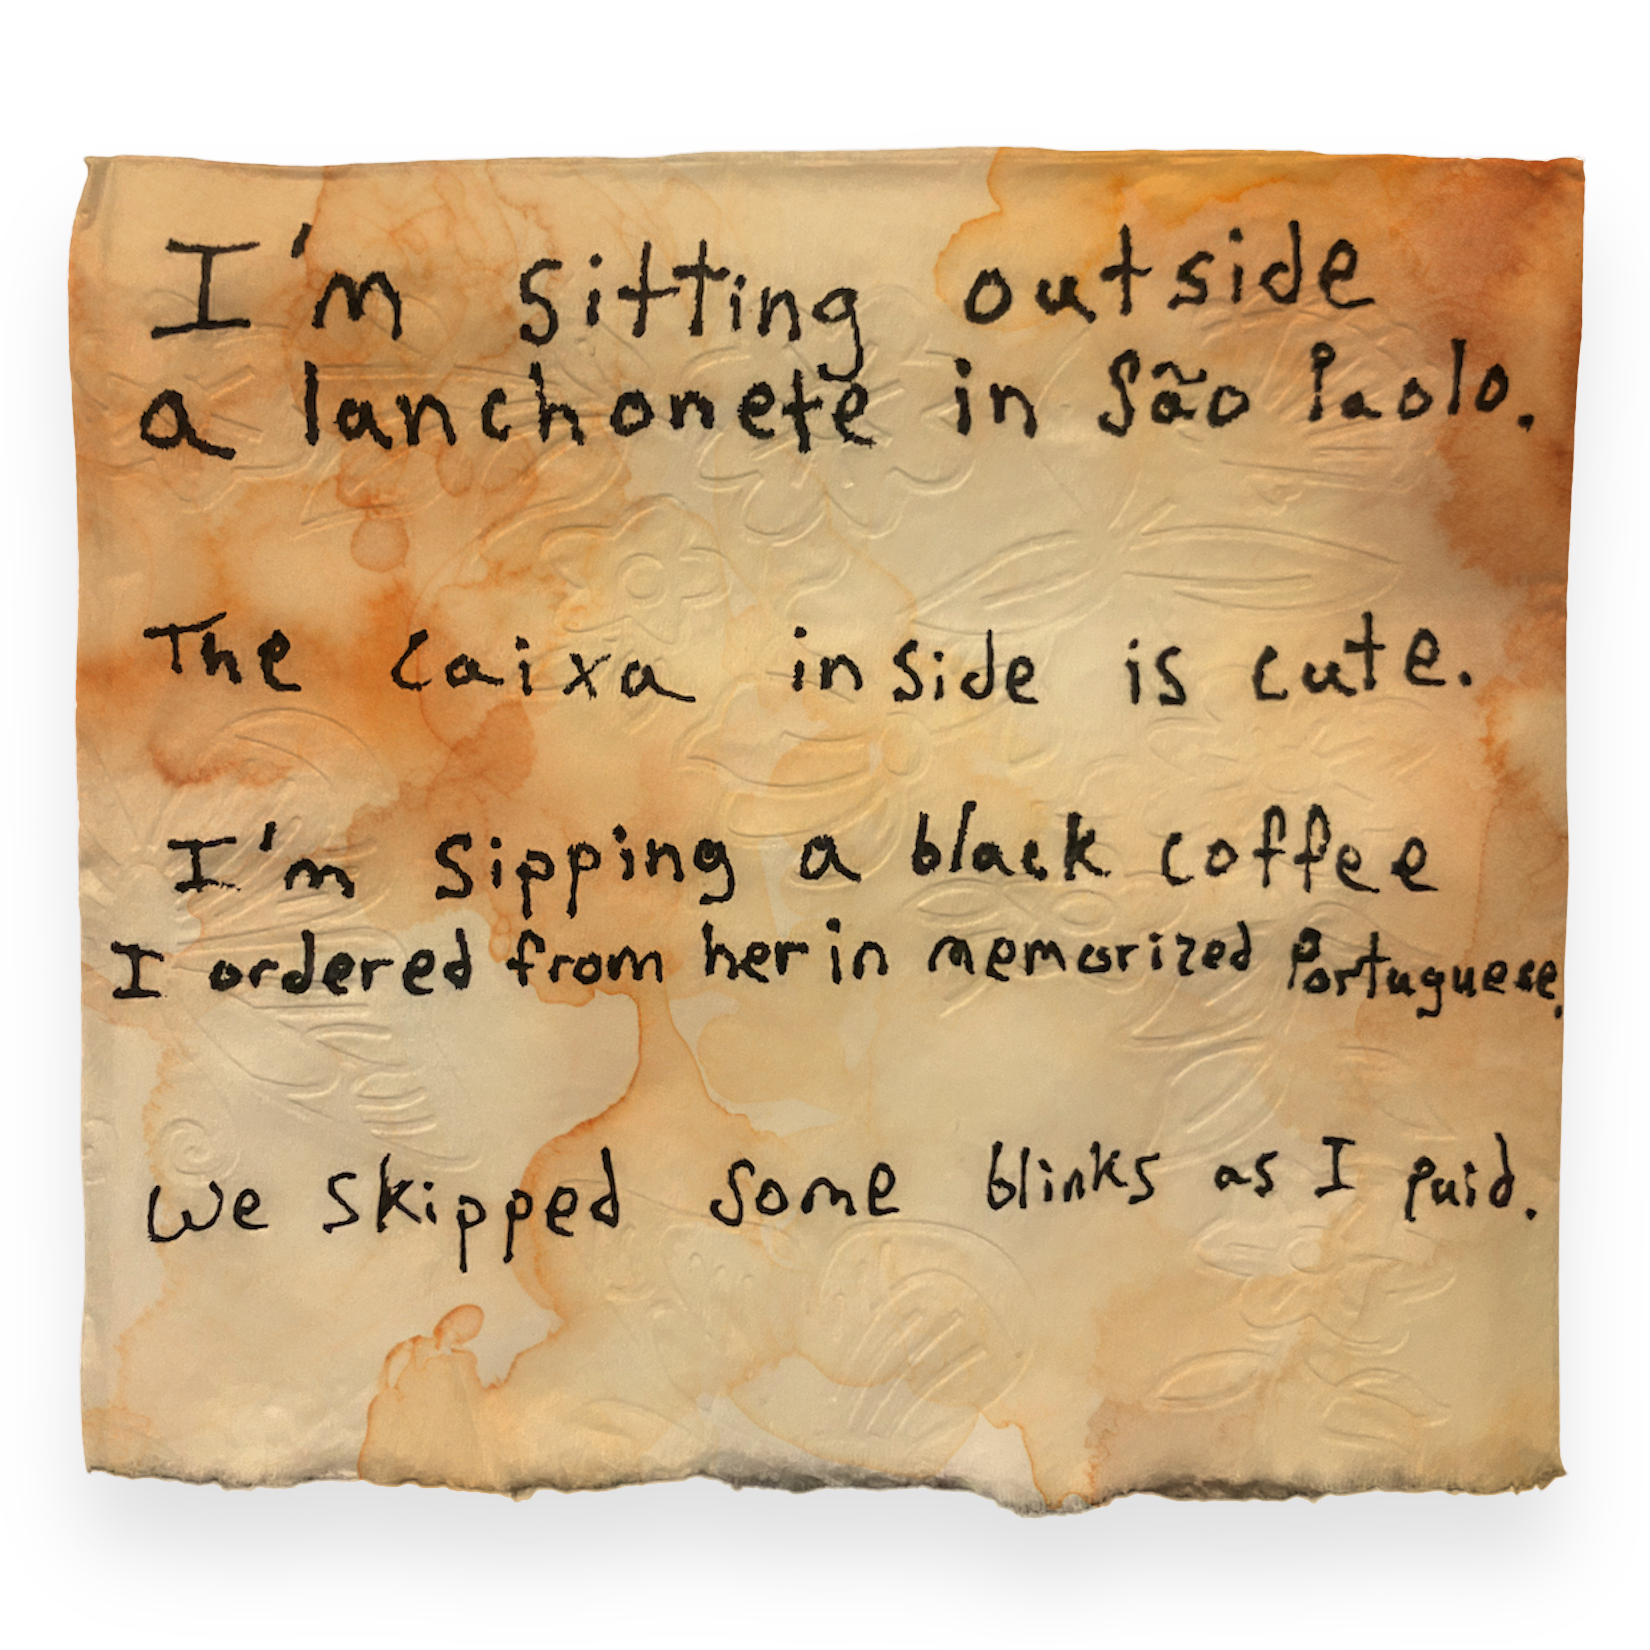 I'm sitting outside
a lanchonete in São Paolo.
The caixa inside is cute.
I'm sipping a black coffee
I ordered from her in memorized Portuguese.
We skipped some blinks as I paid.